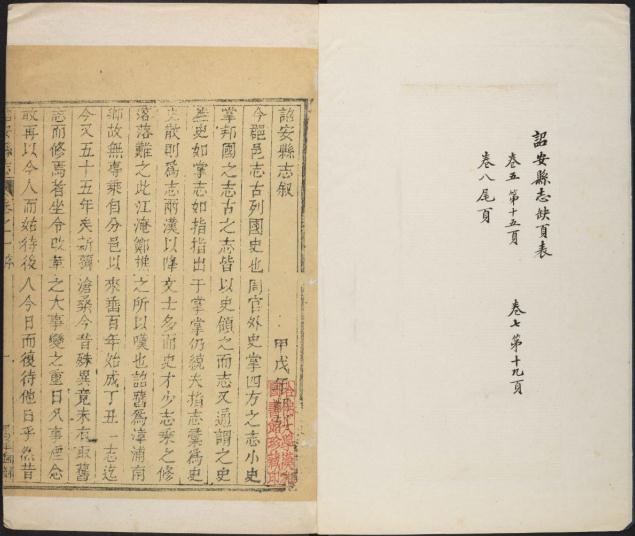 詔安縣志缺頁表
卷五 第十五頁 卷七 第十九頁
卷八尾頁
詔安縣志叙
甲戌年
今郡邑志古列國史也周官外史掌四方之志小史
掌邦國之志古之志皆以史領之而志又通謂之史
史如掌志如指指出于掌掌仍統夫指志彙爲史
史散則爲志兩漢以降文士多而史才少志乘之修
落落難之此江淹鄭樵之所以嘆也詔舊爲漳浦南
鄉故無專乘自分邑以來垂百年始成丁丑一志迄
今又五十五年矣析彌滄桑今昔殊異竟未有取舊
志而修焉者坐令改革之大事變之重日久事湮念
敢再以今人而始待後人今日而復待他日乎然昔